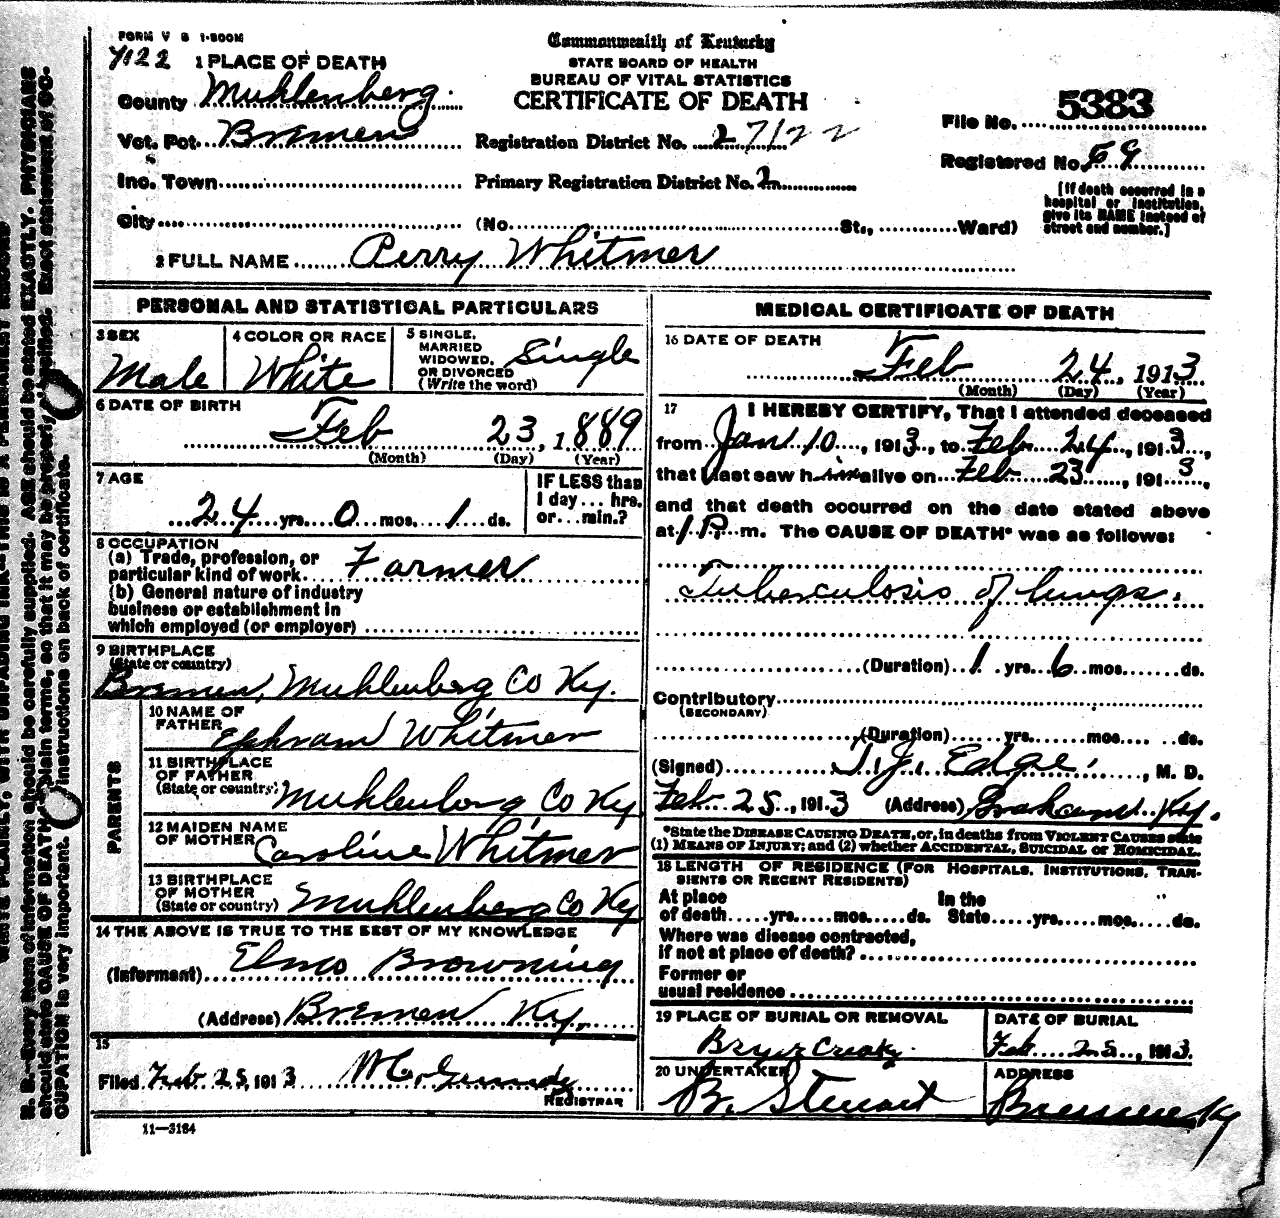 FORM V S 1-500M
7122 1 PLACE OF DEATH
Commonwealth of Kentucky
STATE BOARD OF HEALTH
BUREAU OF VITAL STATISTICS
CERTIFICATE OF DEATH
County Muhlenberg
Vot. Pct. Bremen
Inc. Town
City
Registration District No. 27122
Primary Registration District No. 2
(No. St., Ward)
File No. 5383
Registered No. 59
[If death occurred in a
hospital or institution,
give its NAME instead of
street and number.]
2 FULL NAME Perry Whitmer
PERSONAL AND STATISTICAL PARTICULARS
3 SEX
Male
4 COLOR OR RACE
White
5 SINGLE,
MARRIED
WIDOWED,
OR DIVORCED
(Write the word)
Single
6 DATE OF BIRTH
Feb 23, 1889
(Month) (Day) (Year)
7 AGE
24 yrs. 0 mos. 1 ds.
IF LESS than
1 day... hrs.
or...min.?
8 OCCUPATION
(a) Trade, profession, or
particular kind of work. Farmer
(b) General nature of industry
business or establishment in
which employed (or employer)
9 BIRTHPLACE
(State or country)
Bremen, Muhlenberg Co Ky.
PARENTS
10 NAME OF
FATHER
Ephram Whitmer
11 BIRTHPLACE
OF FATHER
(State or country)
Muhlenberg Co Ky
12 MAIDEN NAME
OF MOTHER
Caroline Whitmer
13 BIRTHPLACE
OF MOTHER
(State or country)
Muhlenberg Co Ky
14 THE ABOVE IS TRUE TO THE BEST OF MY KNOWLEDGE
(Informant) Elmo Browning
(Address) Bremen Ky.
15
Filed Feb 25, 1913
REGISTRAR
11-3184
MEDICAL CERTIFICATE OF DEATH
16 DATE OF DEATH
Feb 24, 1913
(Month) (Day) (Year)
17 I HEREBY CERTIFY, That I attended deceased
from Jan 10, 1913, to Feb 24, 1913,
that I last saw him alive on Feb 23, 1913,
and that death occurred on the date stated above
at 1 P. m. The CAUSE OF DEATH* was as follows:
Tuberculosis of lungs.
(Duration) 1 yrs 6 mos. ds.
Contributory
(SECONDARY)
(Duration) yrs. mos. ds.
(Signed) T. J. Edge, M. D.
Feb 25, 1913 (Address) Graham Ky.
*State the DISEASE CAUSING DEATH, or, in deaths from VIOLENT CAUSES state
(1) MEANS OF INJURY; and (2) whether ACCIDENTAL, SUICIDAL or HOMICIDAL.
18 LENGTH OF RESIDENCE (FOR HOSPITALS, INSTITUTIONS, TRAN-
SIENTS OR RECENT RESIDENTS)
At place In the
of death yrs. mos. ds. State yrs. mos. ds.
Where was disease contracted,
if not at place of death?
Former or
usual residence
19 PLACE OF BURIAL OR REMOVAL
DATE OF BURIAL
Feb 25, 1913
20 UNDERTAKER
B. Steuart
ADDRESS
Bremen Ky
N. B.—Every item of information should be carefully supplied. AGE should be stated EXACTLY. PHYSICIANS
should state CAUSE OF DEATH in plain terms, so that it may be properly classified. Exact statement of OC-
CUPATION is very important. instructions on back of certificate.